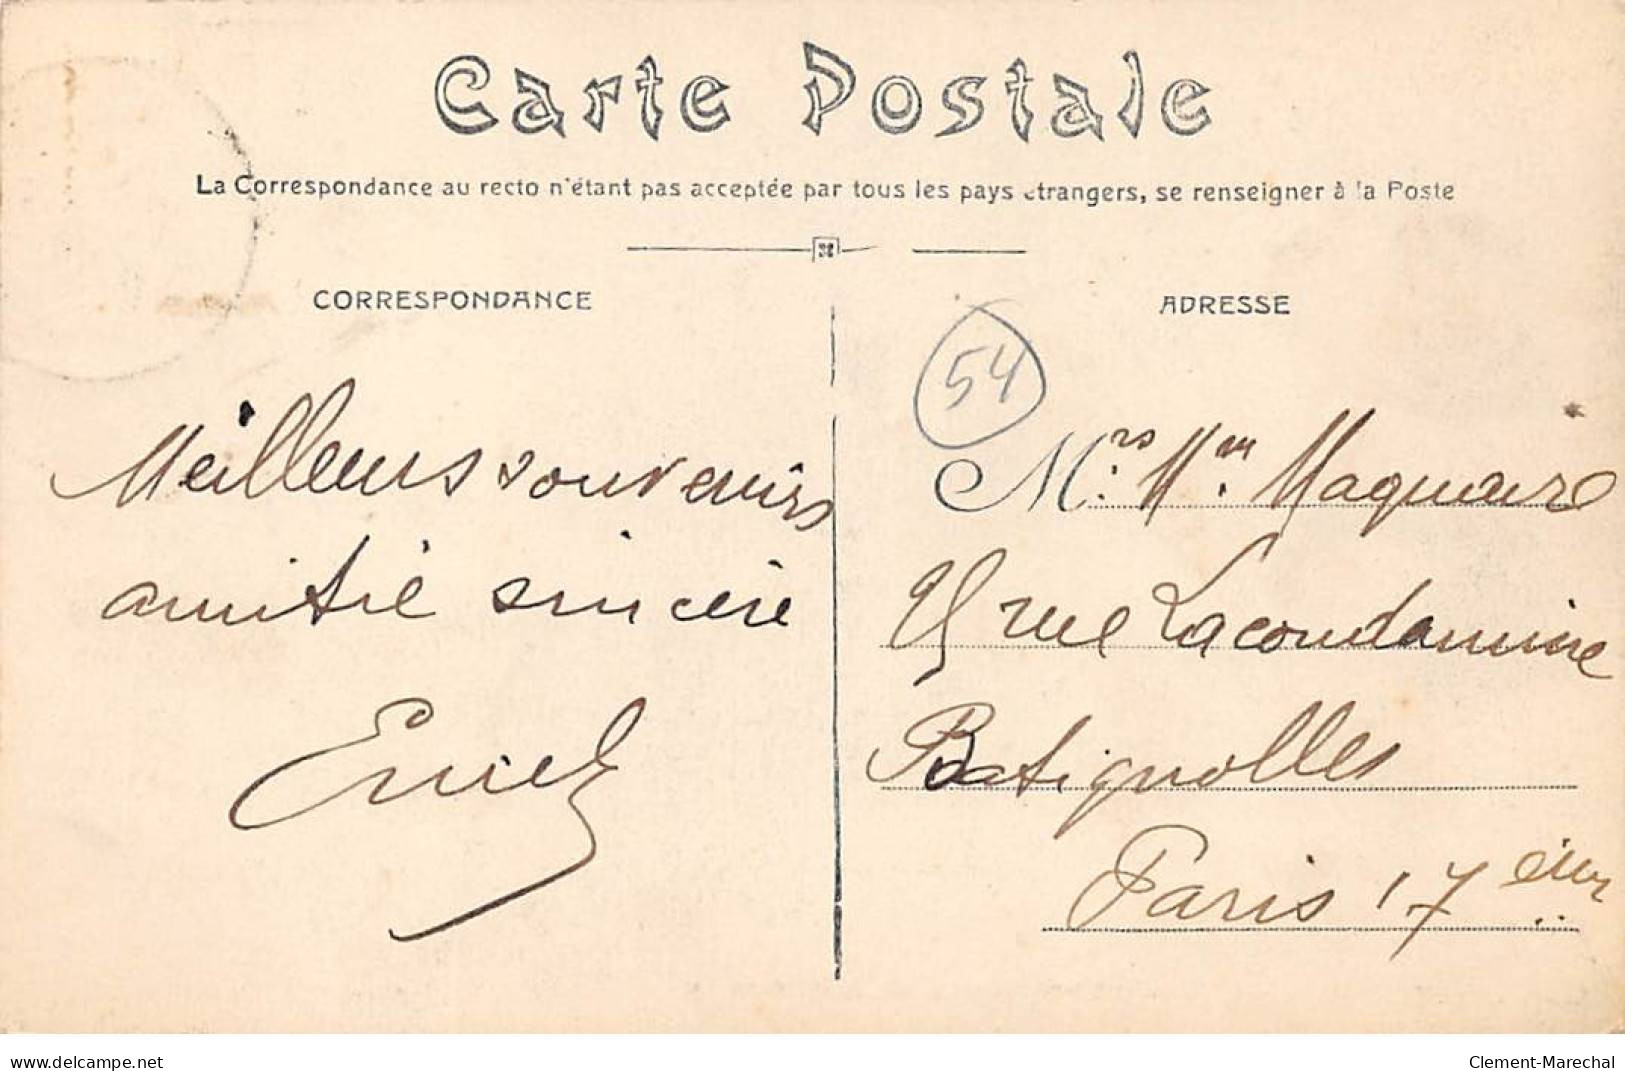 Carte Postale
La Correspondance au recto n'étant pas acceptée par tous les pays étrangers, se renseigner à la Poste
CORRESPONDANCE
ADRESSE
54
Meilleurs souvenirs
amitié sincère
M.rs M.me Maquaire
rue Lacondamine
Batignolles
Paris 17 ème
www.delcampe.net
Clement-Marechal